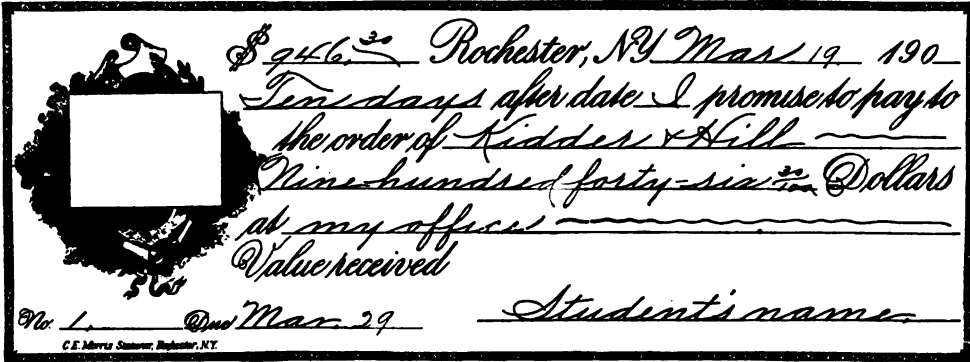 $ 946.30 Rochester, N.Y. Mar 19 190
Ten days after date I promise to pay to
the order of Kidder & Hill
Nine hundred forty-six 30/100 Dollars
at my office
Value received
No. 1. Due Mar. 29 Student's name.
C.E. Morris Stationer, Rochester, N.Y.